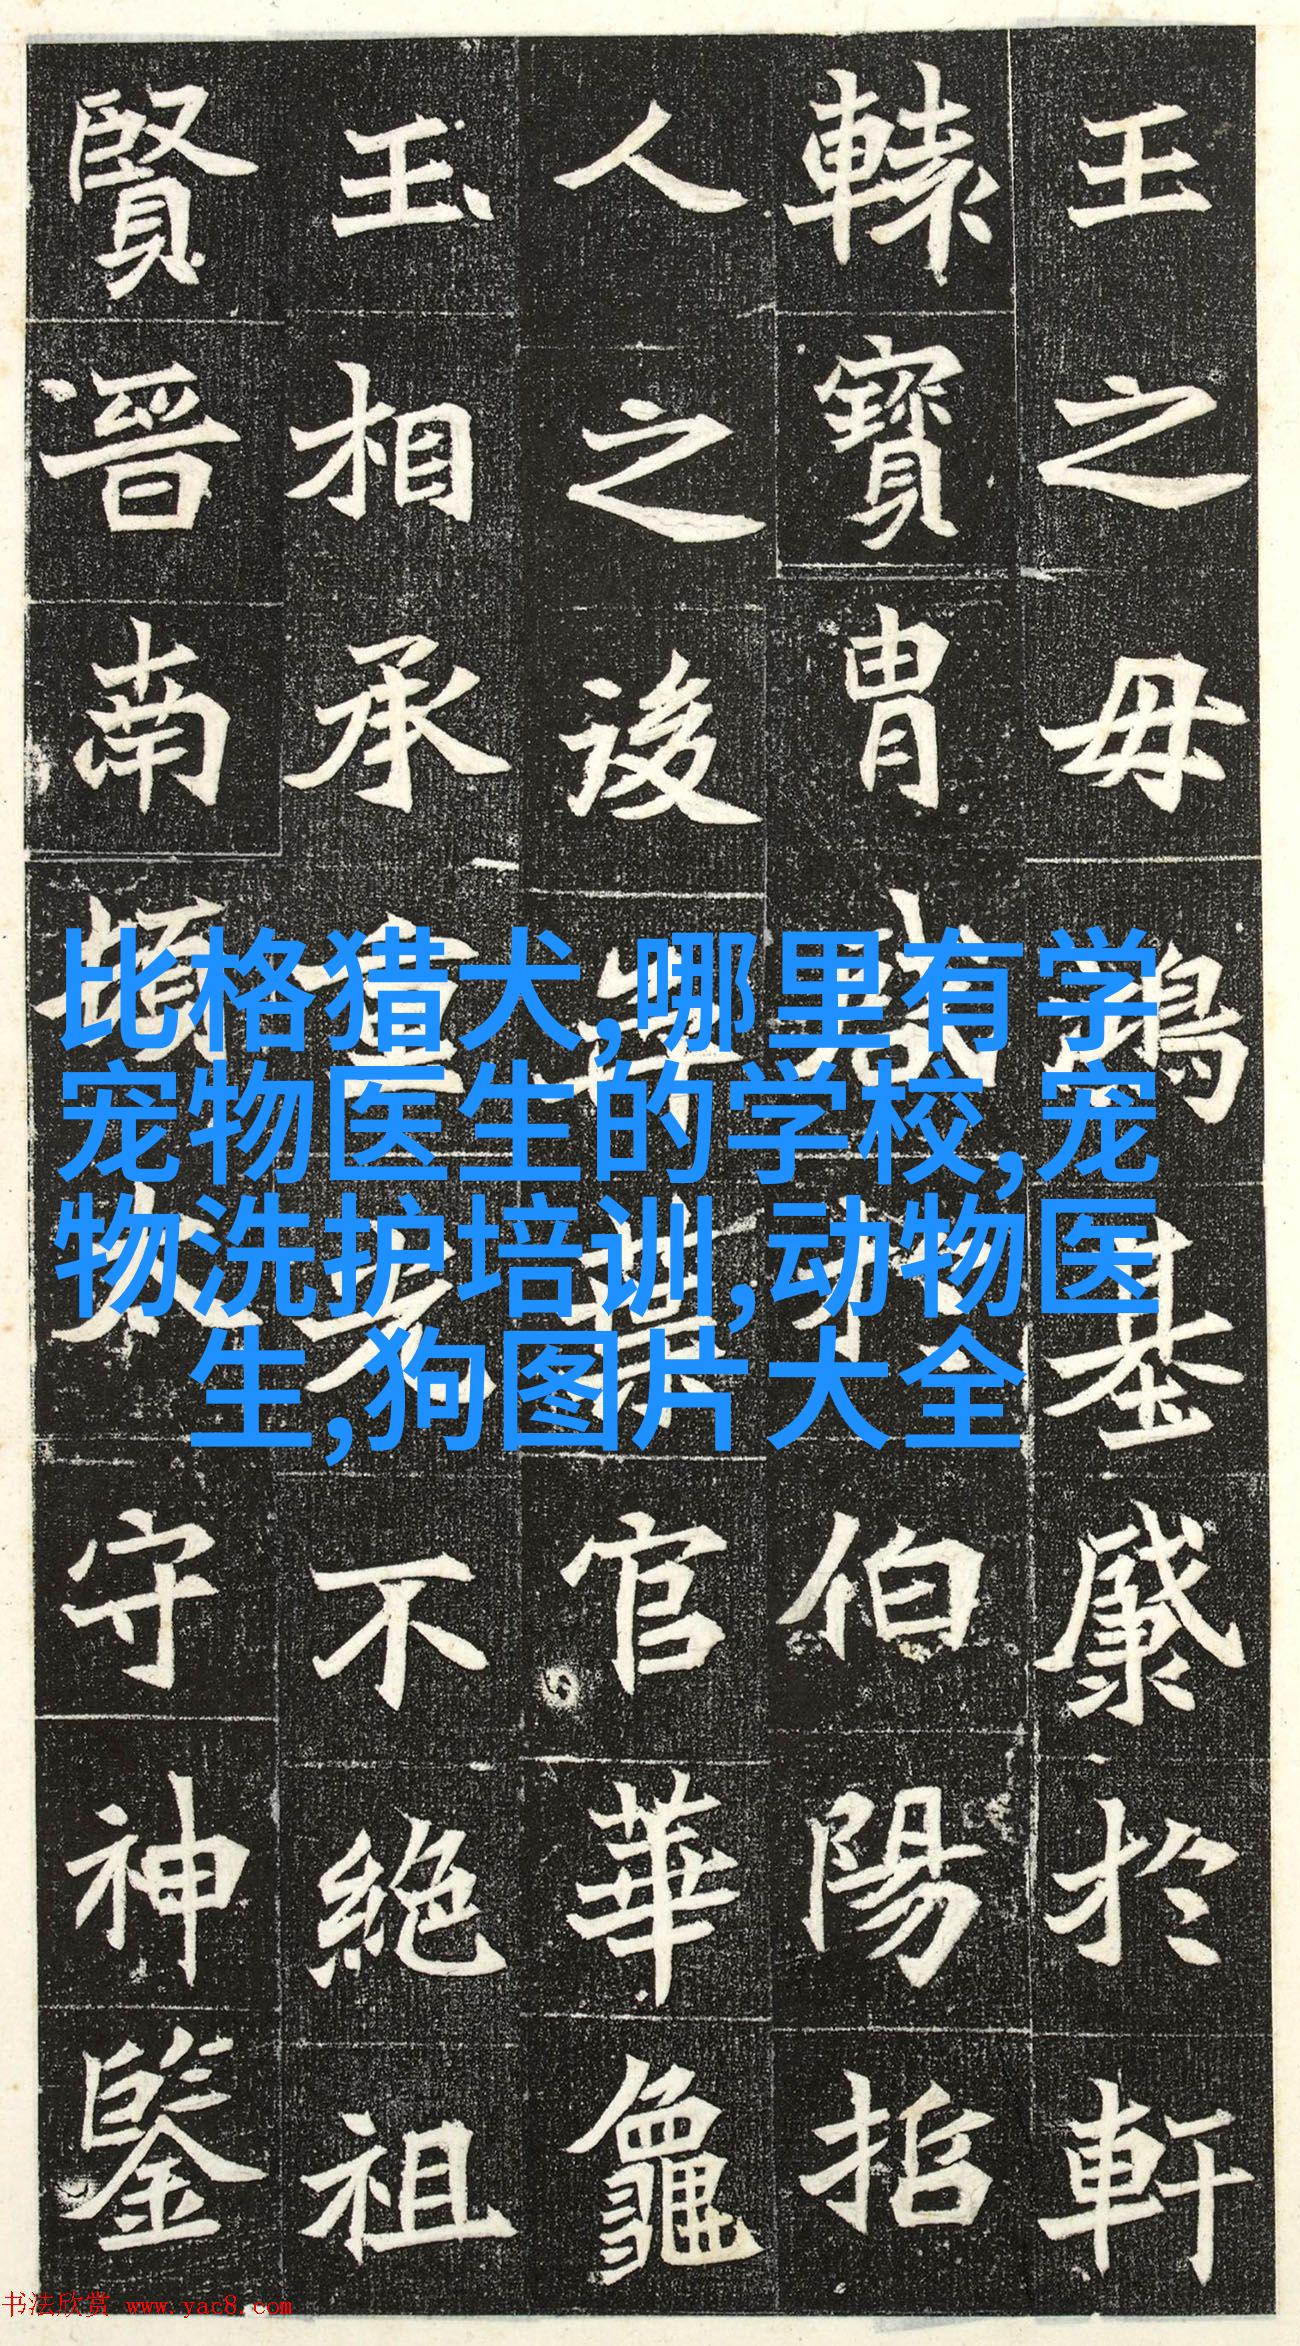 王之毋鴻基於軒
轅寶胄伯陽指
人之後官華龜
玉相承重光不絕祖
賢晉南頓太守神鑒
比格猎犬,哪里有学
宠物医生的学校,宠
物洗护培训,动物医
生,狗图片大全
书法欣赏 www.yac8.com